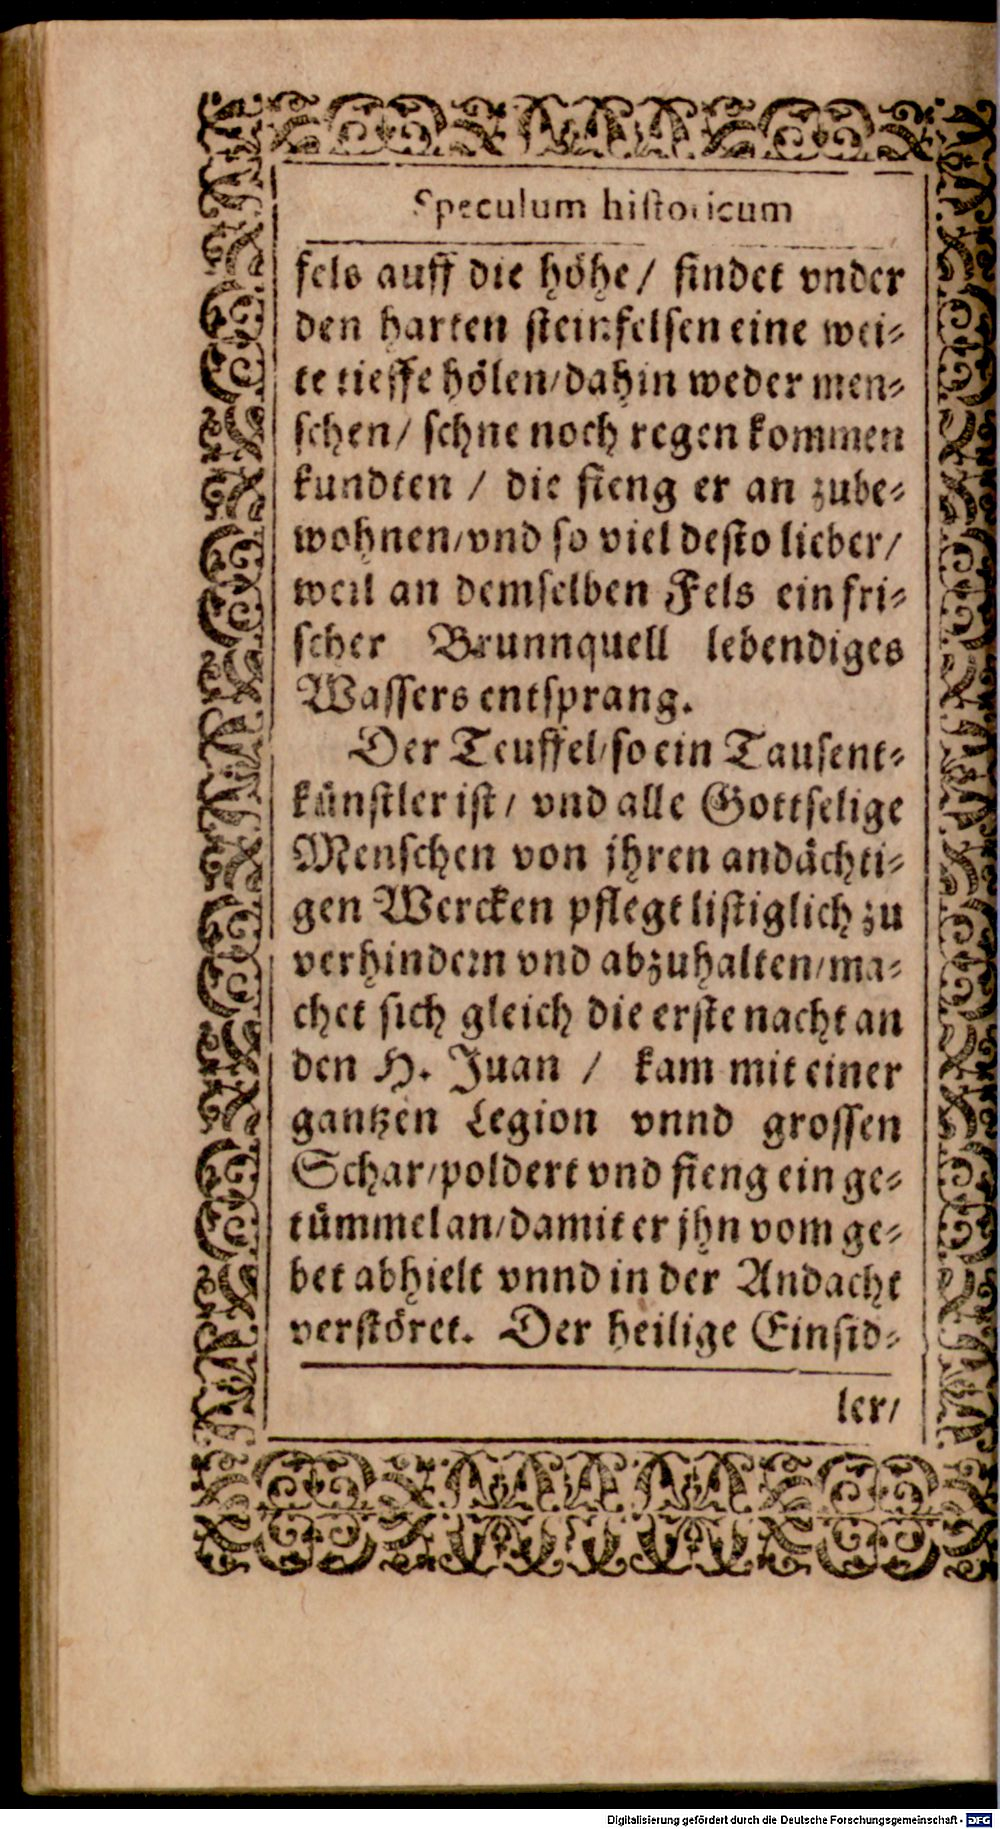 Speculum historicum
fels auff die höhe/ findet vnder
den harten steinfelsen eine wei-
te tieffe hölen/dahin weder men-
schen/ schne noch regen kommen
kundten / die fieng er an zube-
wohnen/vnd so viel desto lieber/
weil an demselben Fels ein fri-
scher Brunnquell lebendiges
Wassers entsprang.
Der Teuffel/so ein Tausent-
künstler ist/ vnd alle Gottselige
Menschen von jhren andächti-
gen Wercken pflegt listiglich zu
verhindern vnd abzuhalten/ma-
chet sich gleich die erste nacht an
den H. Juan / kam mit einer
gantzen Legion vnnd grossen
Schar/poldert vnd fieng ein ge-
tümmel an/damit er jhn vom ge-
bet abhielt vnnd in der Andacht
verstöret. Der heilige Einsid-
ler/
Digitalisierung gefördert durch die Deutsche Forschungsgemeinschaft - DFG